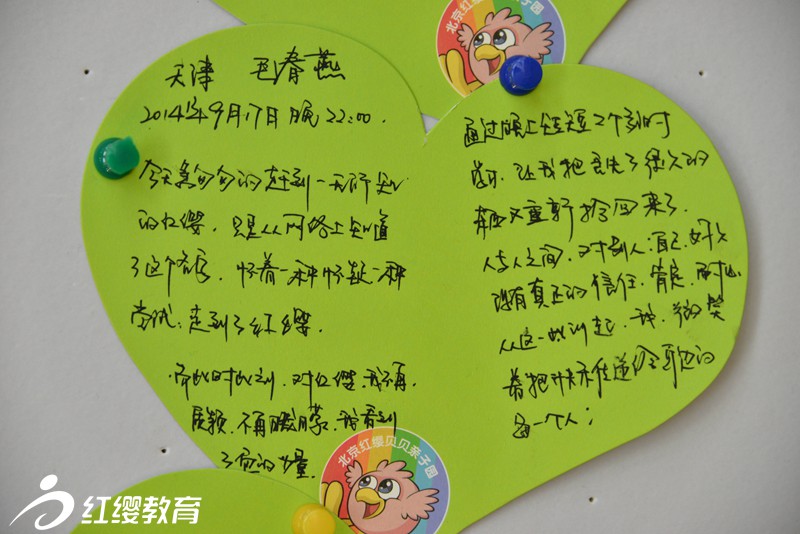 北京红缨贝贝亲子园
天津 毛春燕
2014年9月17日 晚22:00.
今天急匆匆的赶到一无所知
的红缨,只是从网络上知道
了这个名字,怀着一种怀疑一种
尝试,走到了红缨.
带此时此刻,对红缨,我不再
质疑,不再朦胧,我看到
了它的力量.
通过晚上短短2个多小时
学习,让我把丢失了很久的
东西又重新捡回来了.
人与人之间,对别人,自己,好久
没有真正的信任,肯定,
从这一时刻起,我,微笑
着把快乐传递给身边的
每一个人;
北京红缨贝贝亲子园
红缨教育